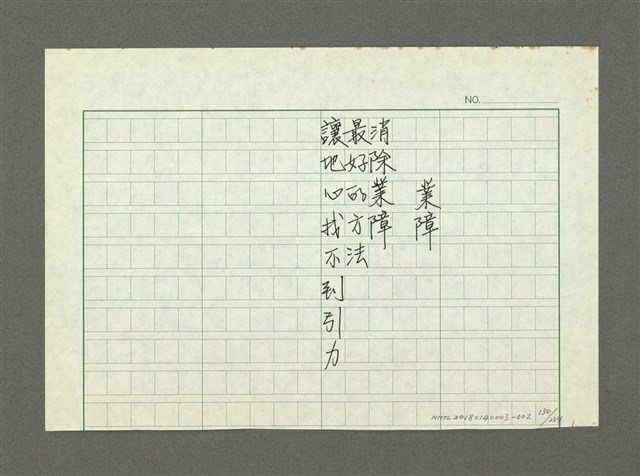 NO.
業障
消除業障
最好的方法
讓地心找不到引力
NMTL20180140003-002